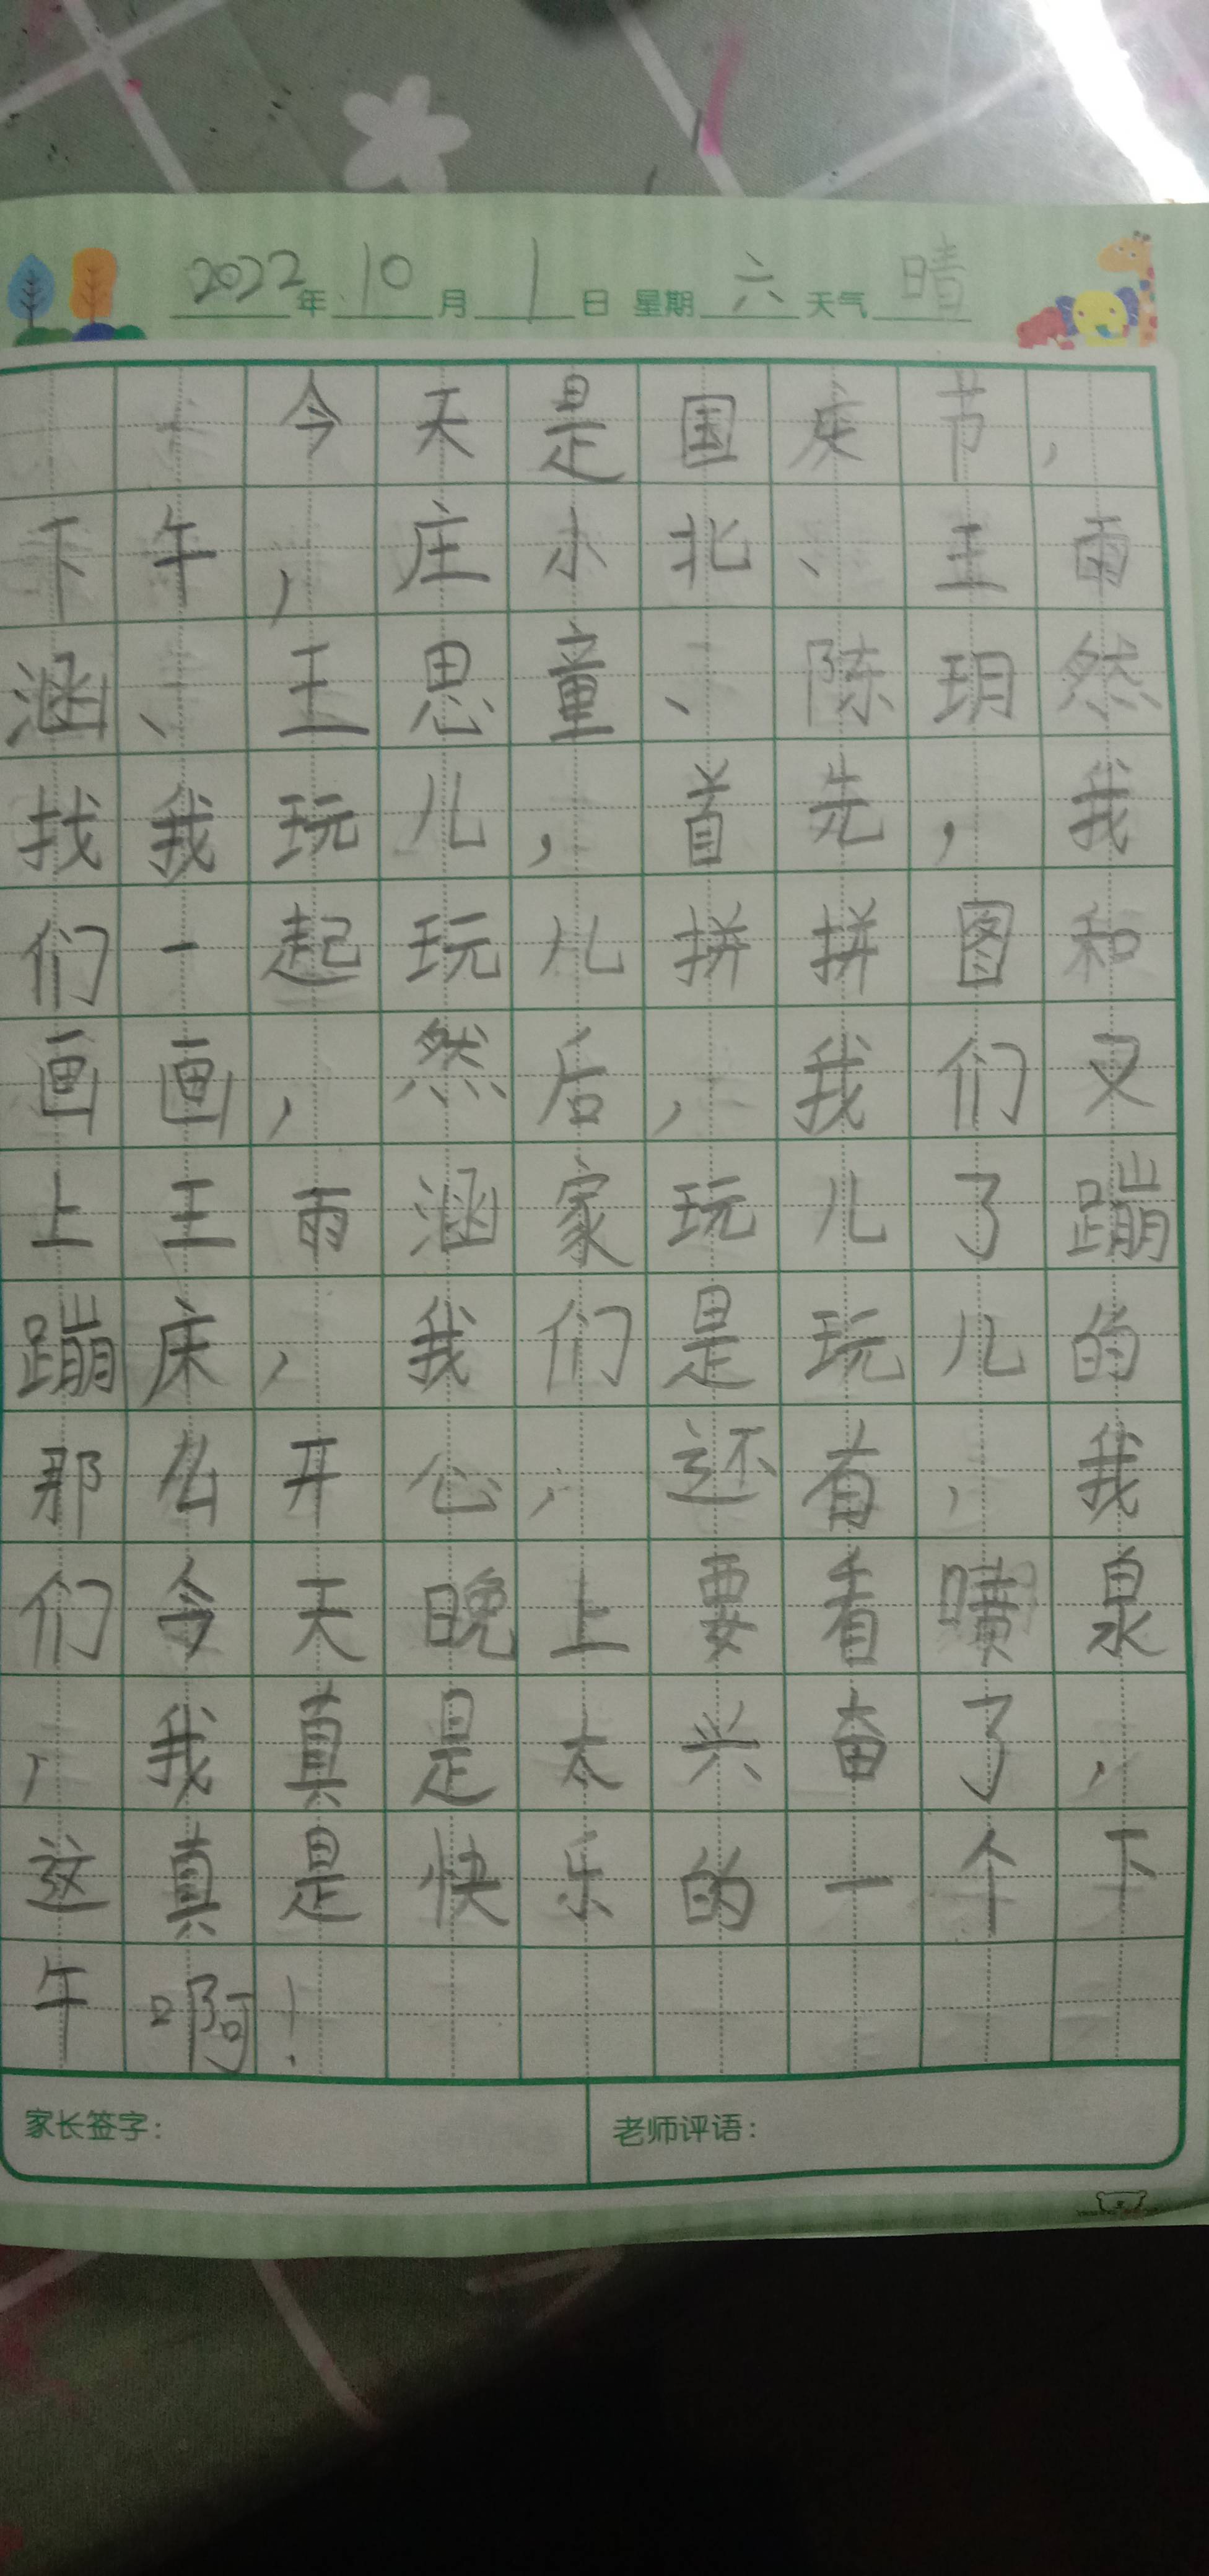 2022年10月1日 星期六天气晴
今天是国庆节，
下午，庄小北、王雨
涵、王思童、陈玥然
找我玩儿，首先，我
们一起玩儿拼拼图和
画画，然后，我们又
上王雨涵家玩儿了蹦
蹦床，我们是玩儿的
那么开心，还有，我
们今天晚上要看喷泉
，我真是太兴奋了，
这真是快乐的一个下
午啊！
家长签字：
老师评语：